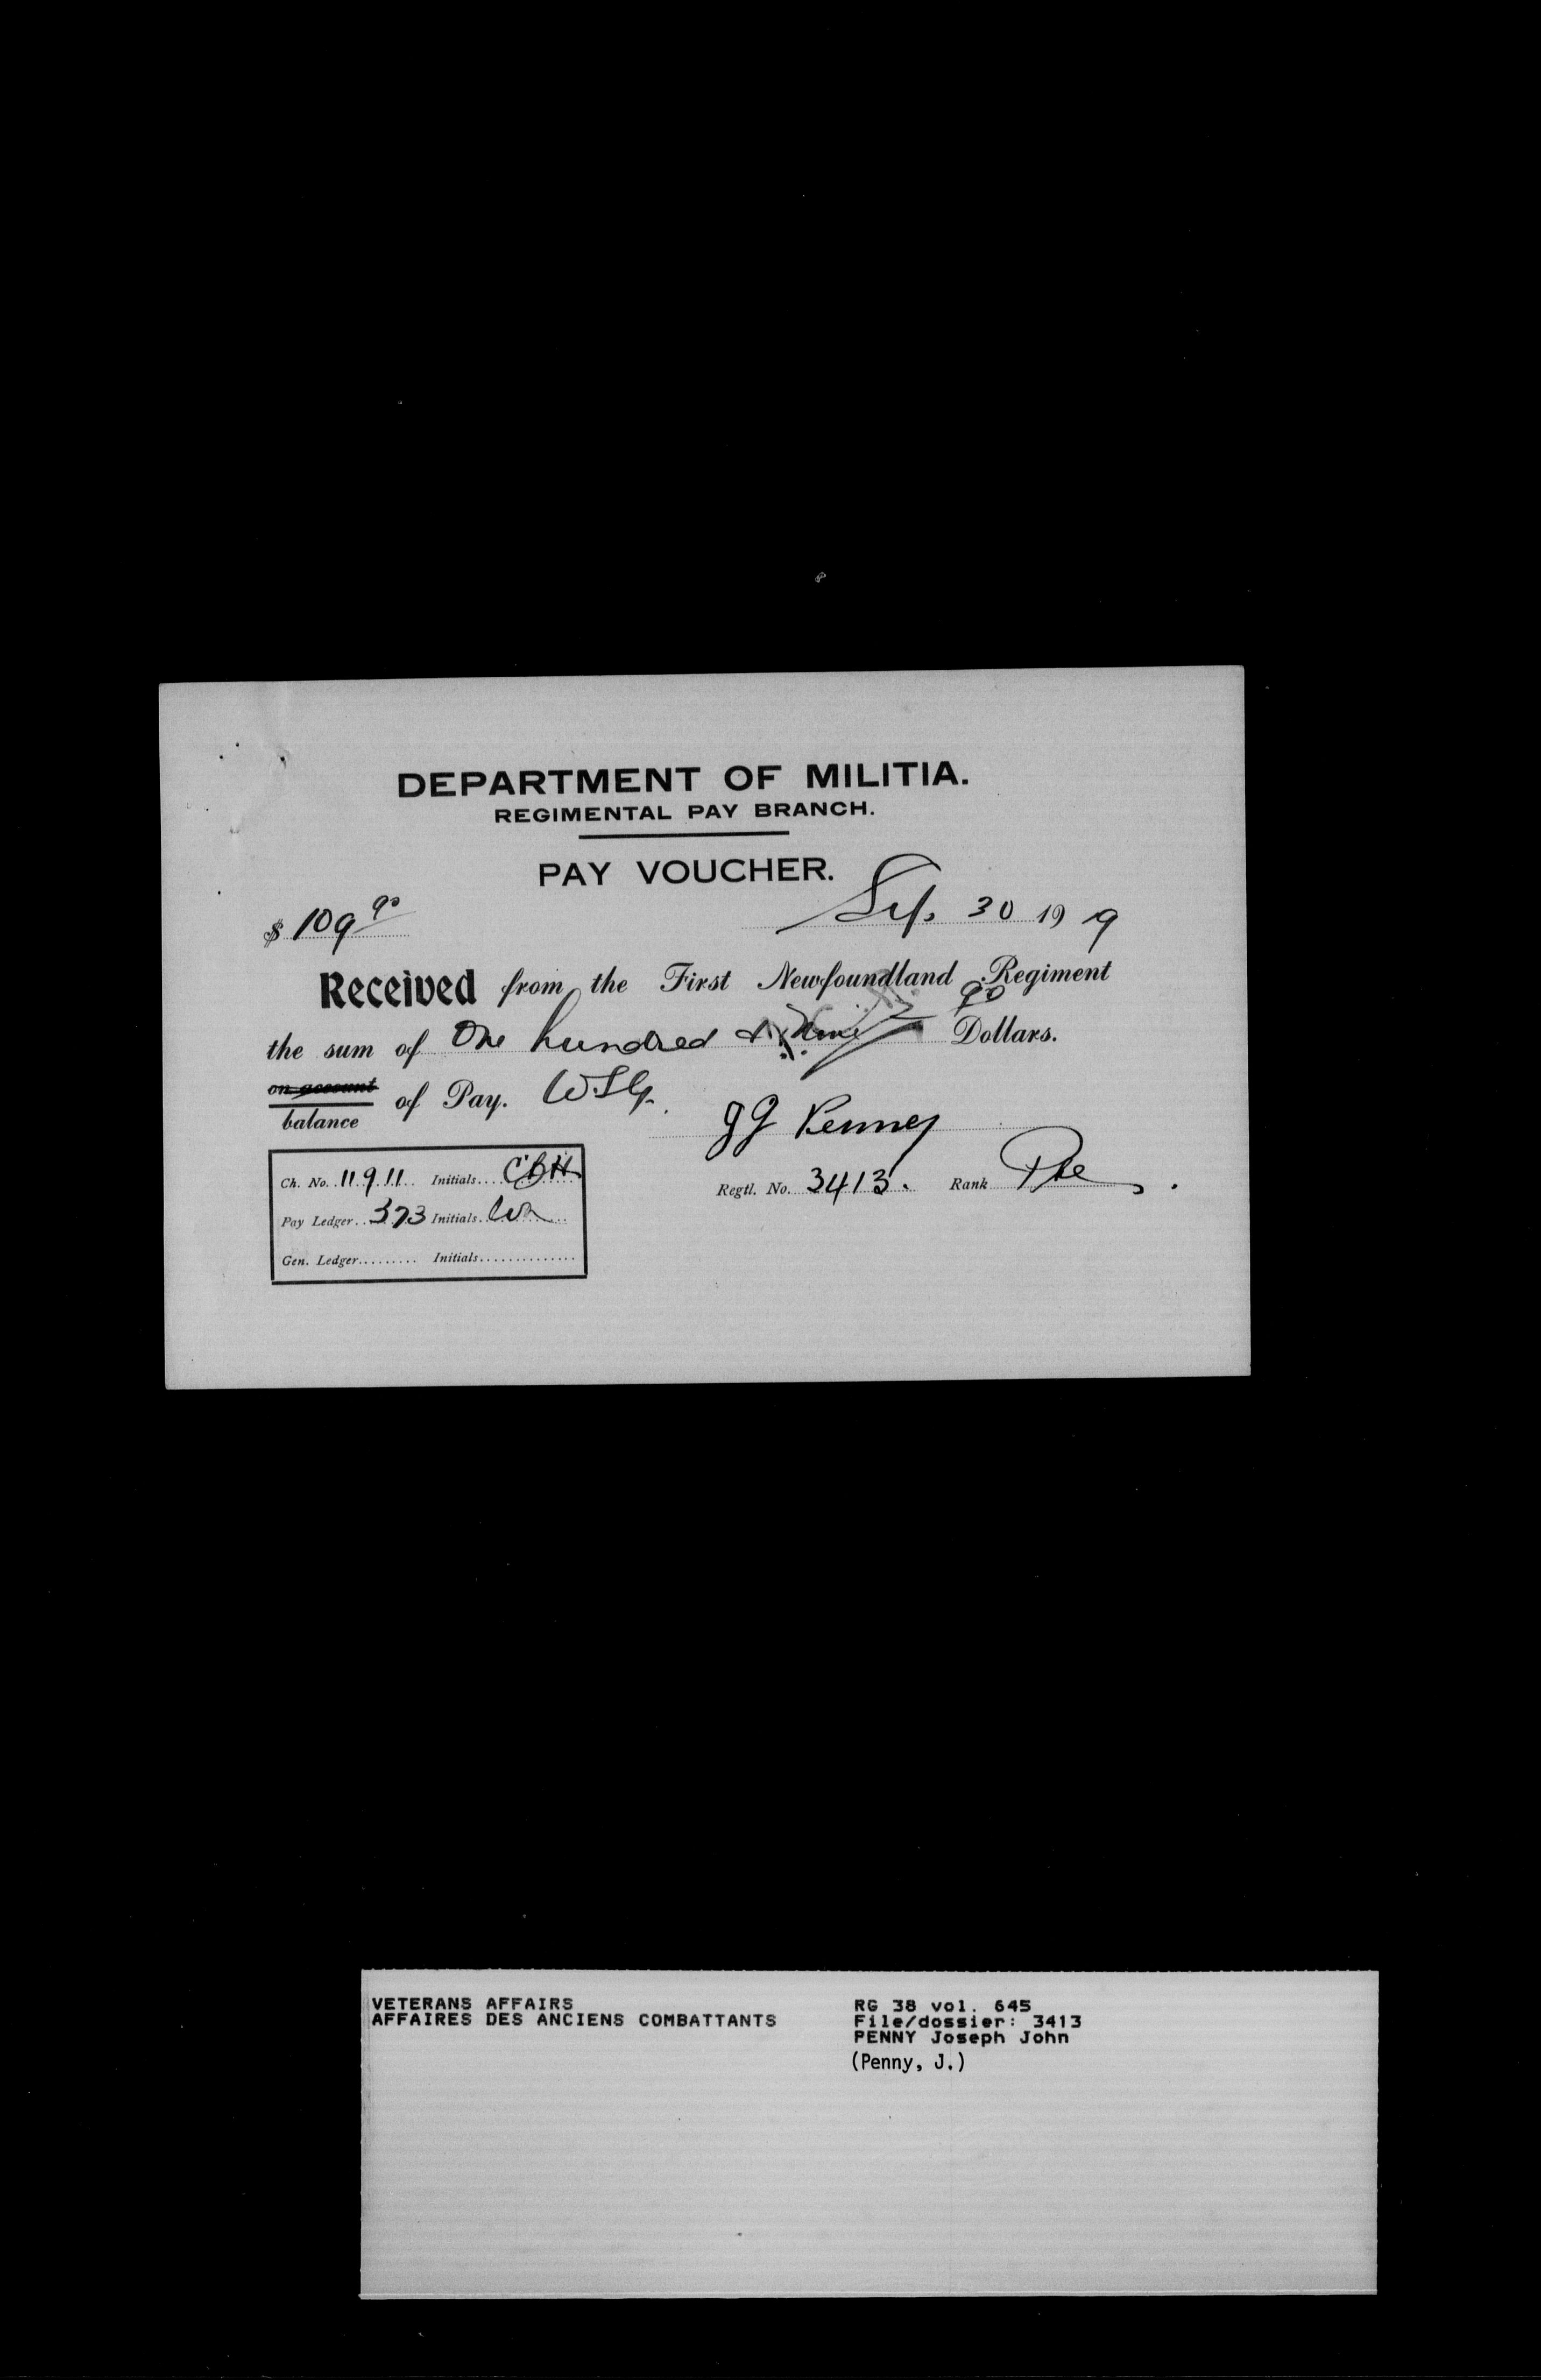 DEPARTMENT OF MILITIA.
REGIMENTAL PAY BRANCH.
PAY VOUCHER.
$ 109 90 Sep. 30 1919
Received from the First Newfoundland Regiment
the sum of One hundred & Nine 90 Dollars.
on account
balance of Pay. W.S.G.
J J Penney
Ch. No. 11911 Initials.... CBH
Regtl. No. 3413. Rank Pte
Pay Ledger.. 373 Initials.
Gen. Ledger......... Initials..............
VETERANS AFFAIRS
AFFAIRES DES ANCIENS COMBATTANTS
RG 38 vol. 645
File/dossier: 3413
PENNY Joseph John
(Penny, J.)